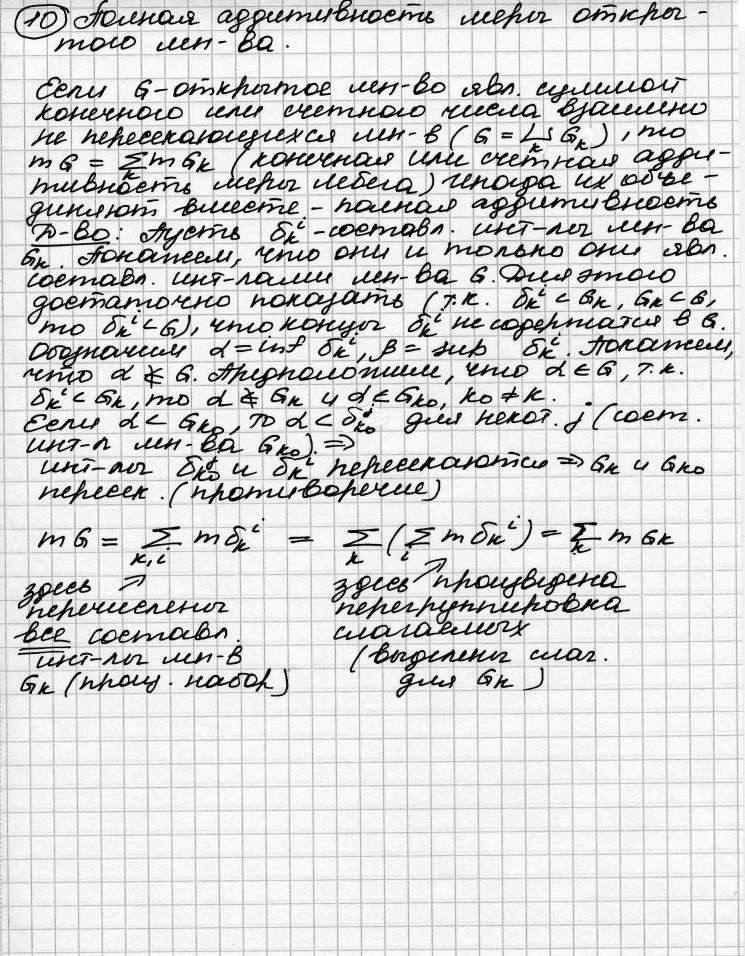 ⑩ Полная аддитивность меры откры-
того мн-ва.
Если G-открытое мн-во явл. суммой
конечного или счетного числа взаимно
не пересекающихся мн-в (G = ⊔ₖ Gₖ), то
mG = Σₖ mGₖ (конечная или счетная адди-
тивность меры Лебега) Иногда их объе-
диняют вместе - полная аддитивность
Д-во: Пусть δₖⁱ - составл. инт-лы мн-ва
Gₖ. Покажем, что они и только они явл.
составл. инт-лами мн-ва G. Для этого
достаточно показать (т.к. δₖⁱ ⊂ Gₖ, Gₖ ⊂ G,
то δₖⁱ ⊂ G), что концы δₖⁱ не содержатся в G.
Обозначим α = inf δₖⁱ, β = sup δₖⁱ. Покажем,
что α ∉ G. Предположим, что α ∈ G, т.к.
δₖⁱ ⊂ Gₖ, то α ∉ Gₖ и α ∈ Gₖ₀, k₀ ≠ k.
Если α ⊂ Gₖ₀, то α ⊂ δₖ₀ʲ для некот. j (сост.
инт-л мн-ва Gₖ₀) ⇒
инт-лы δₖ₀ʲ и δₖⁱ пересекаются ⇒ Gₖ и Gₖ₀
пересек. (противоречие)
mG = Σₖ,ᵢ mδₖⁱ = Σₖ (Σᵢ mδₖⁱ) = Σₖ mGₖ
здесь ↗ здесь ↗ произведена
перечислены перегруппировка
все составл. слагаемых
инт-лы мн-в (выделены слаг.
Gₖ (     . набор) для Gₖ)